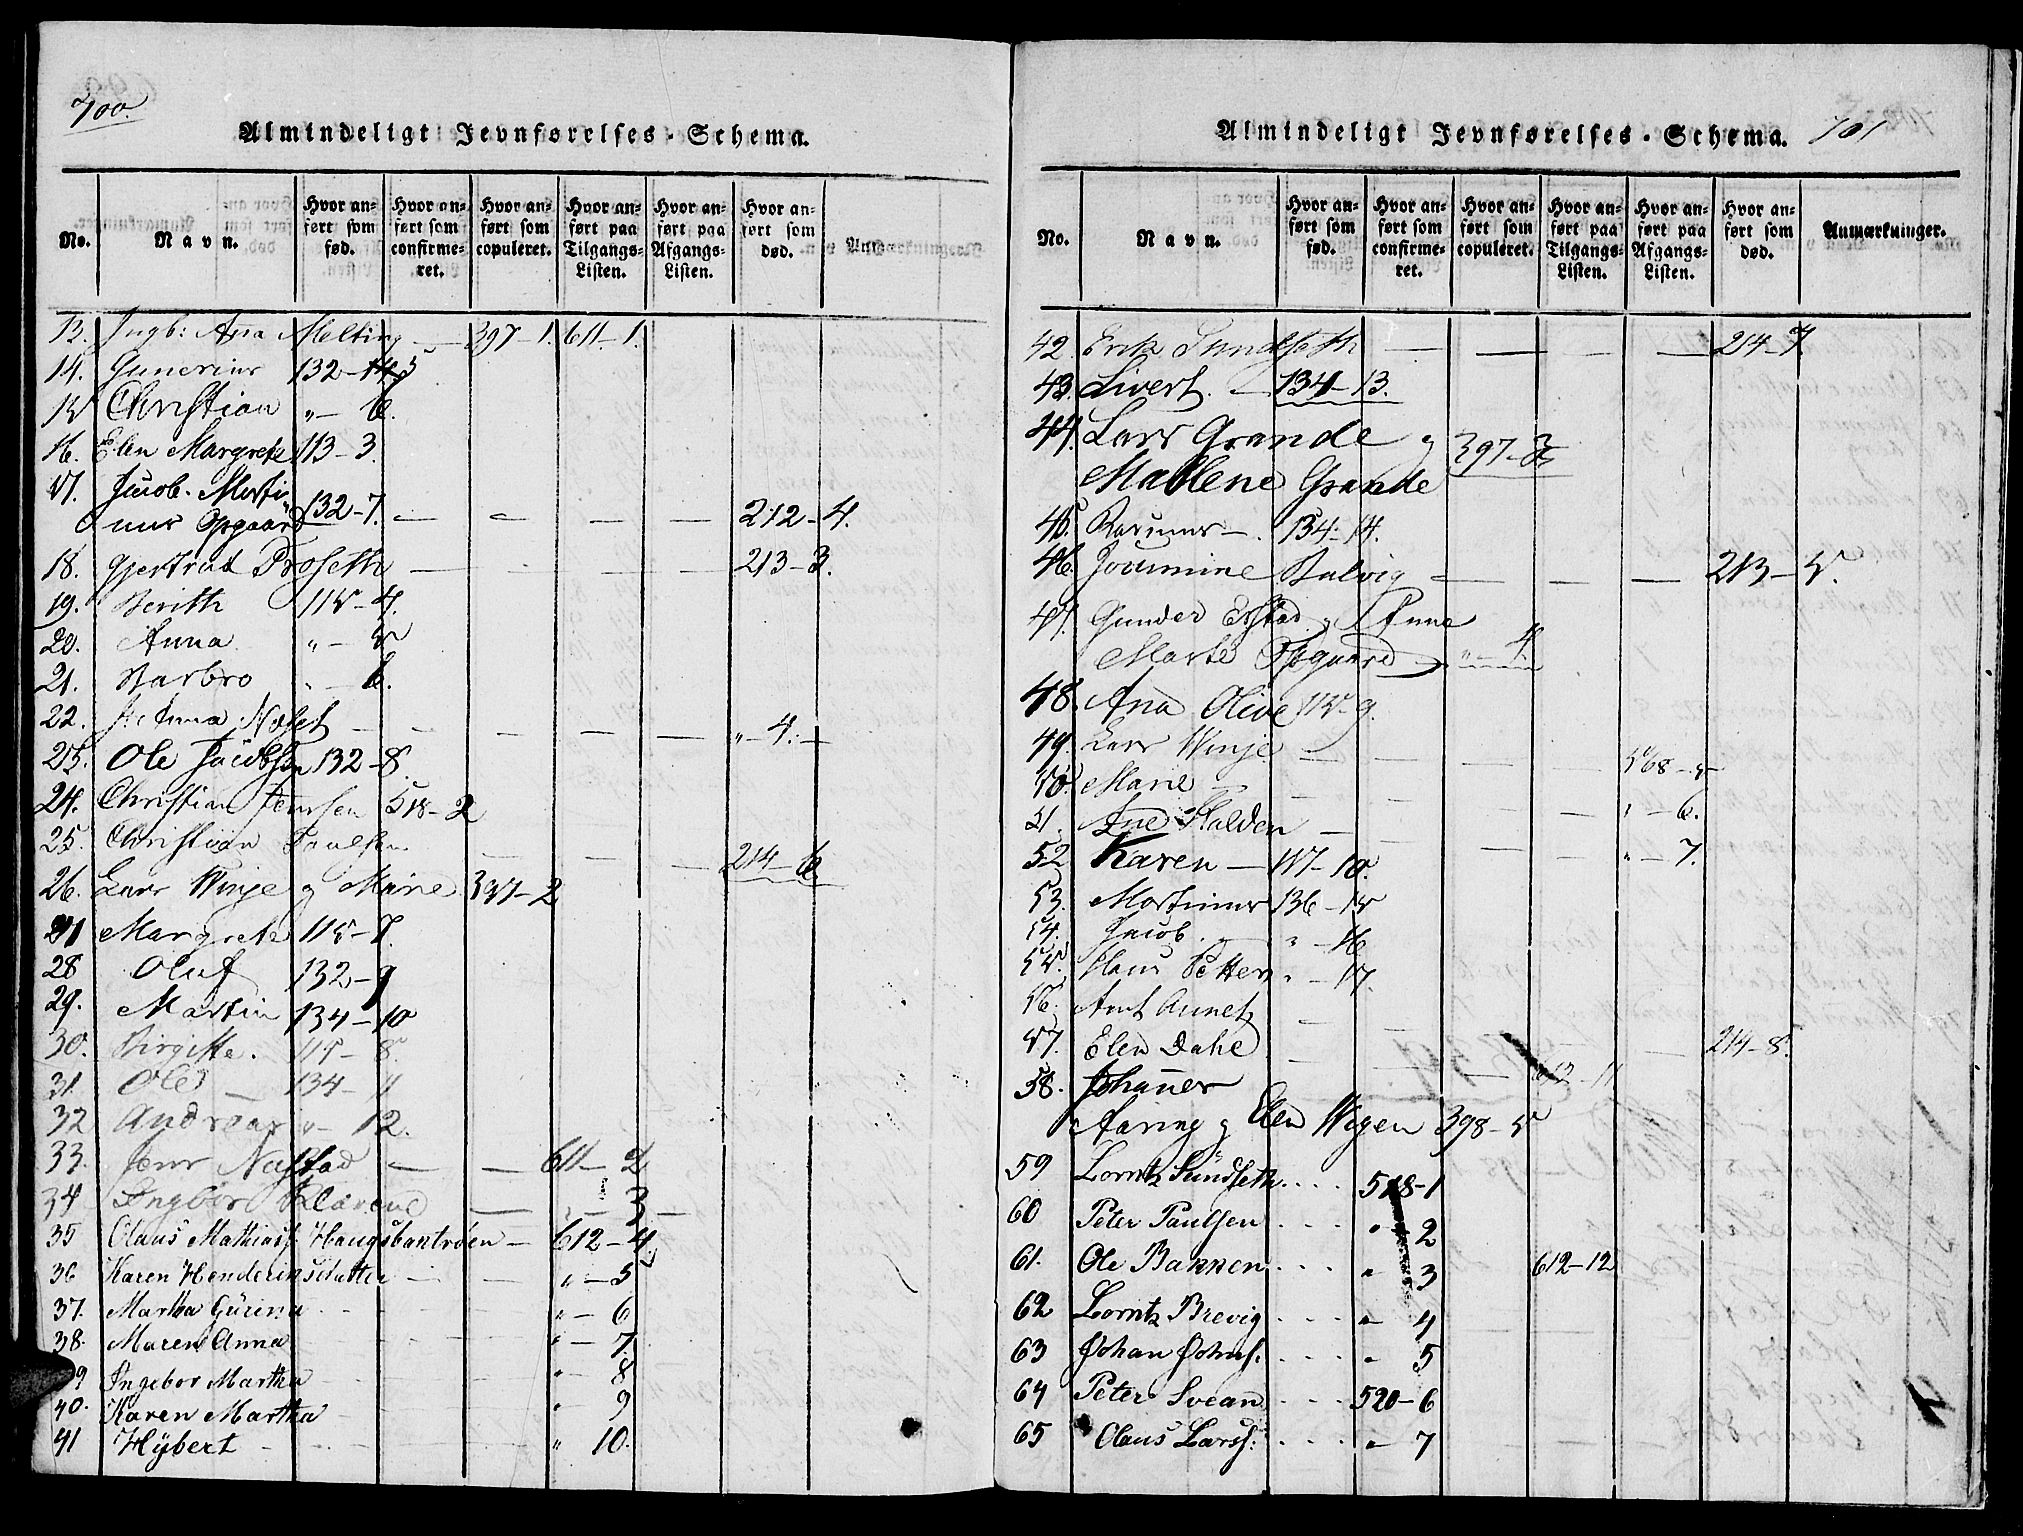 700.
Almindeligt Jevnførelses-Schema.
No. Navn. Hvor anført som fød. Hvor anført som confirmeret. Hvor anført som copuleret. Hvor anført paa Tilgangs-Listen. Hvor anført paa Afgangs-Listen. Hvor anført som død.
13. Ingb: Aña Melting — 397-1. 611-1.
14. Gunerius 132-5
15 Christian „— 6.
16. Elen Margrete 113-3.
17. Jacob Morti
nus Opgaard 132-7. — — — — 212-4.
18. Gjertrud Froseth — - - - - 213-3.
19. Berith 115-4.
20. Anna „— 5
21. Barbro „— 6.
22. Anna — - — — — „—4.—
23. Ole Jacobsen 132-8.
24. Christian Jensen 518-2
25. Christian Paulsen — — — 214-6
26. Lars Winje og Marie 397-2
27 Margrete 115-7.
28 Oluf 132-9
29. Martin 134-10
30. Birgitte. 115-8.
31. Ole — 134-11
32 Andreas „— 12.
33. Jens Nastad — — 611-2
34 Ingbor Klavene — „—3—
35 Olaus Mathiass. Haugsbantrøen — 612-4
36 Karen Henderiksdatter — — „—5
37. Martha Gurina - - - „—6
38. Maren Anna - - - „—7.
39 Ingebor Martha - - „—8
40. Karen Martha - „—9
41 Hÿbert - - - „ 10.
Almindeligt Jevnførelses-Schema. 701
No. Navn. Hvor anført som fød. Hvor anført som confirmeret. Hvor anført som copuleret. Hvor anført paa Tilgangs-Listen. Hvor anført paa Afgangs-Listen. Hvor anført som død. Anmærkninger.
42. Erik Sundseth — — - — 214-7.
43. Sivert. — 134-13.
44. Lars Grande og
Mallene Grande 397-3
45. Rasmus —. 134-14.
46. Joramine Balvig — — — — 213-5.
47. Gunder Estad og Anne
Marte Opgaard „—4
48. Ana Olive 115-9.
49. Lars Winje — - - - 568-5
50. Marie — - - - - „—6.
51. Ane Halden — - - - „—7.
52 Karen — 117-10.
53. Mortinus 136-15
54. Jacob. „—16
55. Hans Petter „—17.
56. Arnt - - -
57. Elen Dahl — - — 214-8.
58. Johañes — 612-11
Aaring og Elen Wegen 398-5
59 Lorntz Sundseth.... 518-1
60 Peter Paulsen - - - „—2
61. Ole Bakken - - - „—3 612-12
62 Lorntz Brevig - - - „—4
63 Johan Johns. - - - „ 5
64 Peter Svean - - - 520-6
65 Olaus Larss: - - - „—7